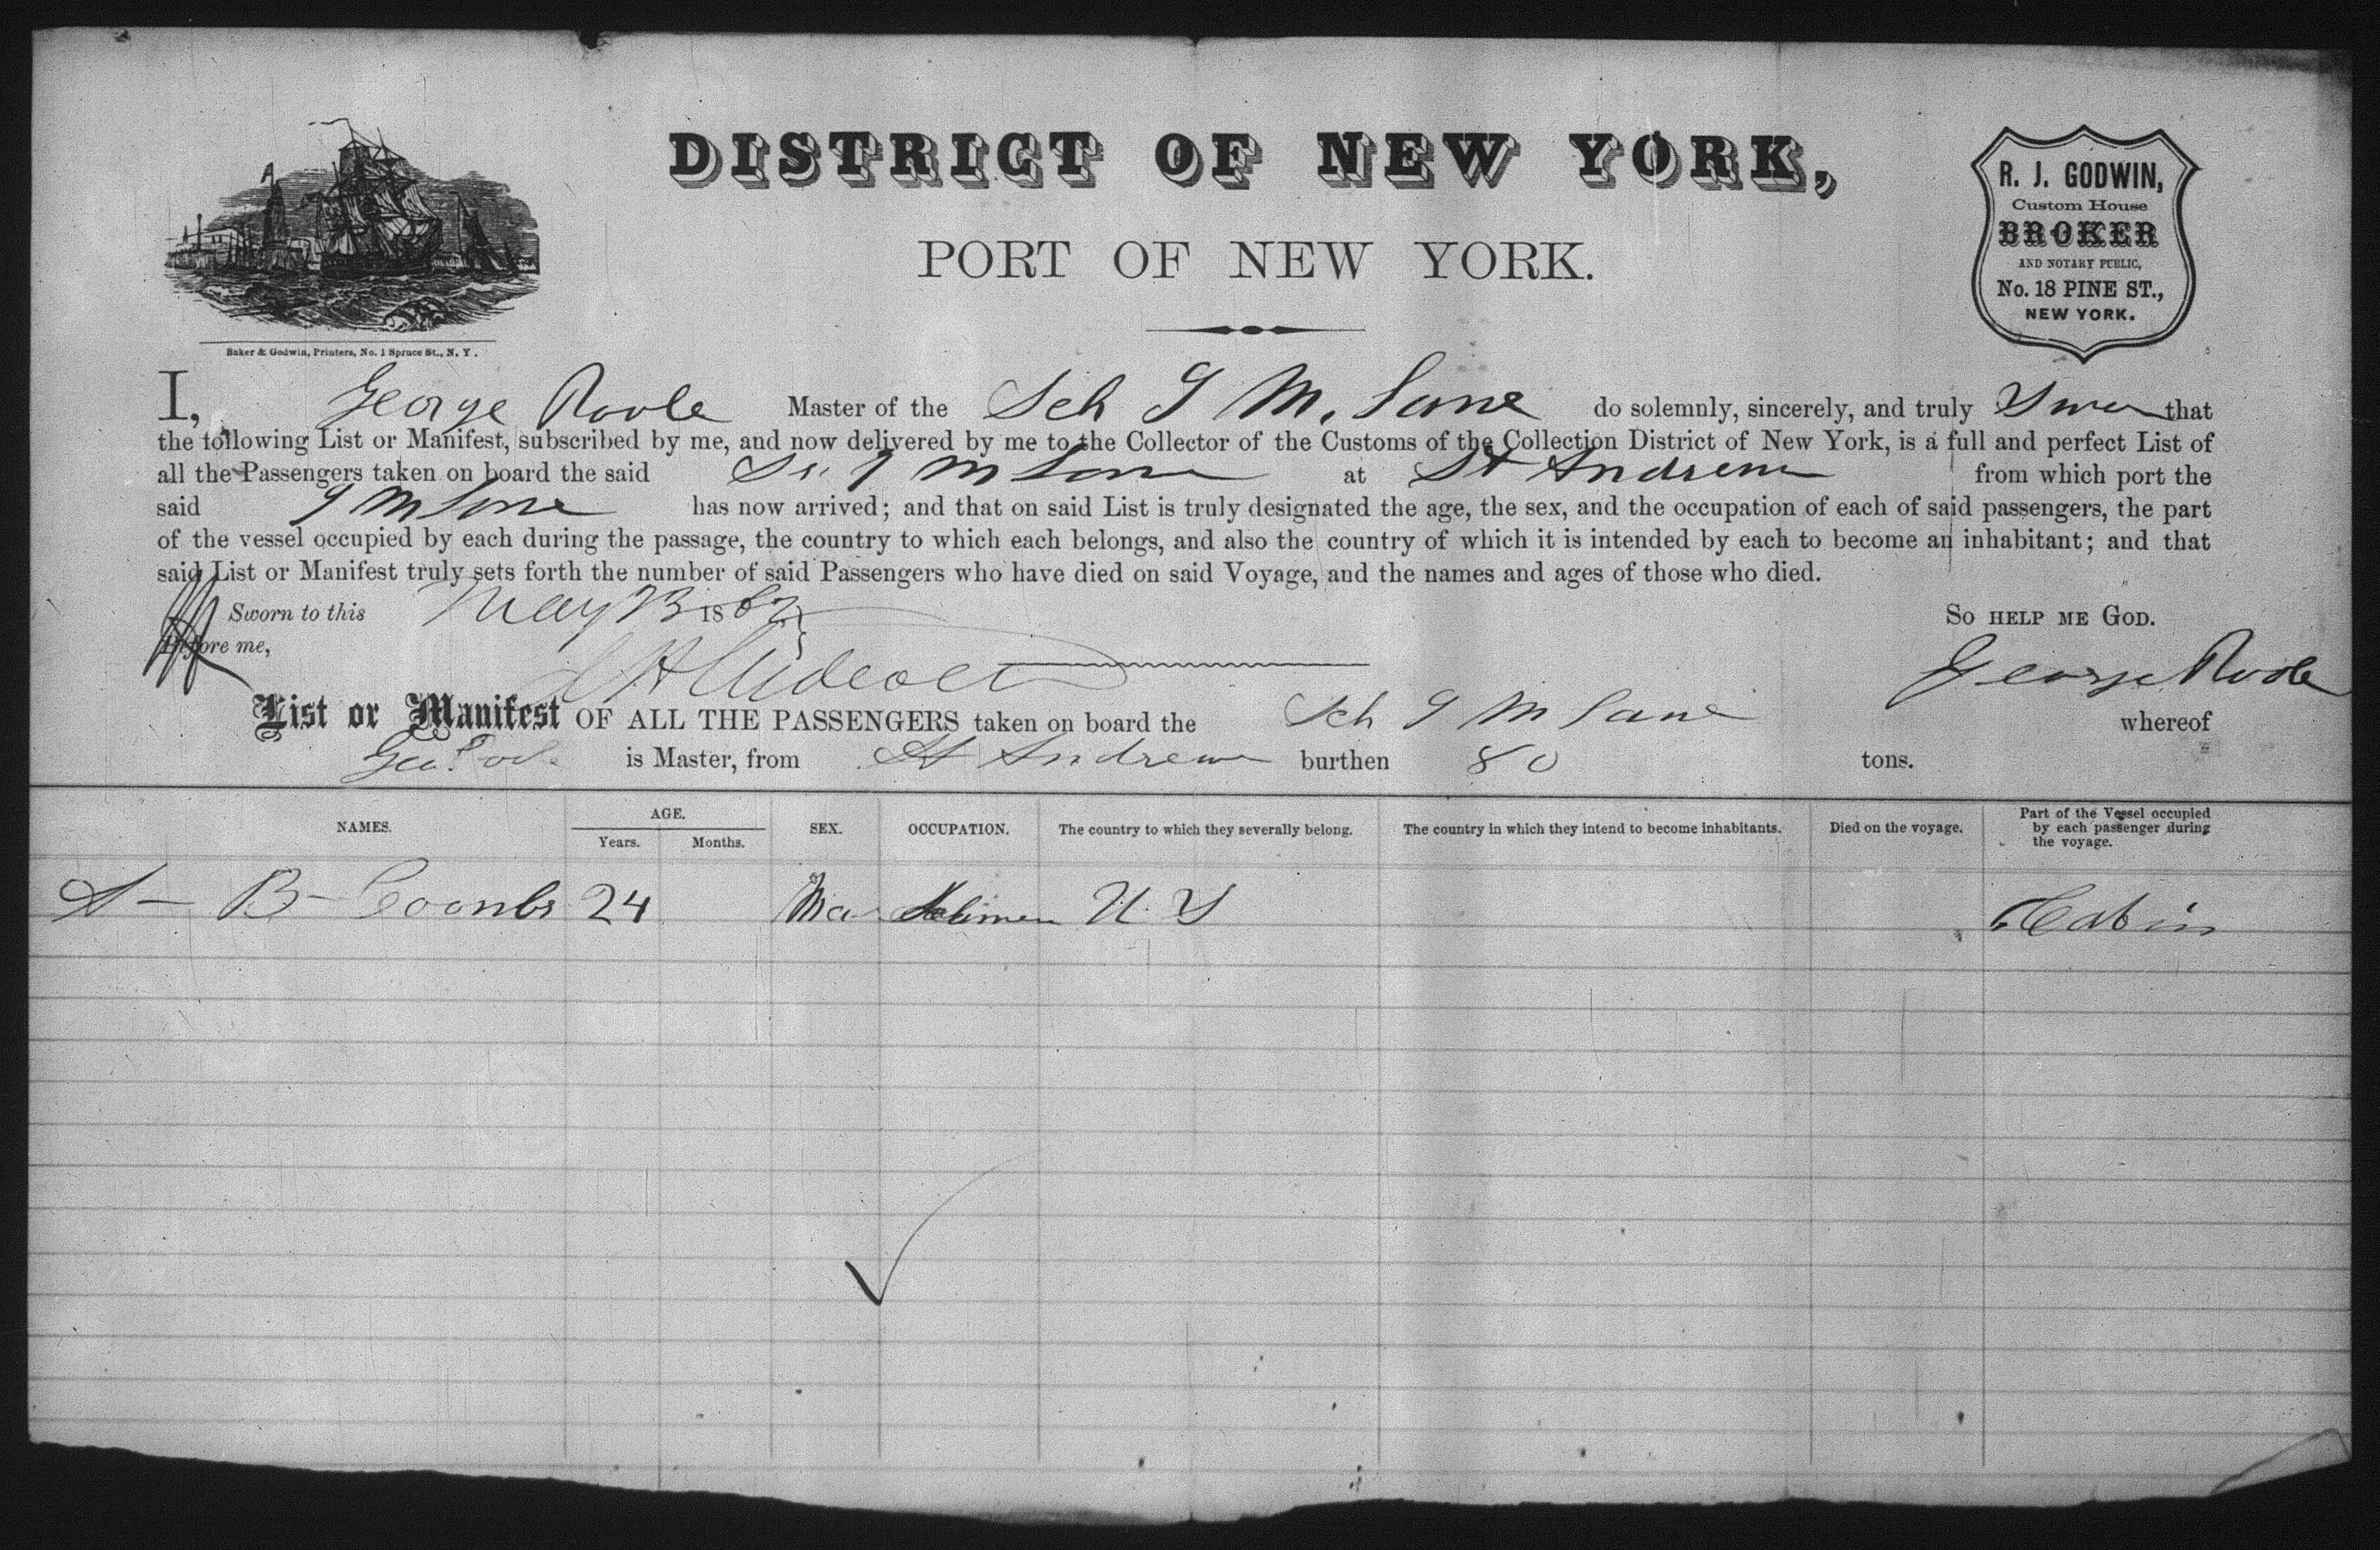 DISTRICT OF NEW YORK,
PORT OF NEW YORK.
R. J. GODWIN,
Custom House
BROKER
AND NOTARY PUBLIC,
No. 18 PINE ST.,
NEW YORK.
Baker & Godwin, Printers, No. 1 Spruce St., N. Y.
I, George Poole Master of the Sch J M. Lane do solemnly, sincerely, and truly Swear that
the following List or Manifest, subscribed by me, and now delivered by me to the Collector of the Customs of the Collection District of New York, is a full and perfect List of
all the Passengers taken on board the said J M Lane at St Andrews from which port the
said J M Lane has now arrived; and that on said List is truly designated the age, the sex, and the occupation of each of said passengers, the part
of the vessel occupied by each during the passage, the country to which each belongs, and also the country of which it is intended by each to become an inhabitant; and that
said List or Manifest truly sets forth the number of said Passengers who have died on said Voyage, and the names and ages of those who died.
Sworn to this May 13 1862 So HELP ME GOD.
Before me,
George Poole
List or Manifest OF ALL THE PASSENGERS taken on board the Sch J M Lane whereof
Geo. Poole is Master, from St Andrews burthen 80 tons.
NAMES. AGE. Years. Months. SEX. OCCUPATION. The country to which they severally belong. The country in which they intend to become inhabitants. Died on the voyage. Part of the Vessel occupied by each passenger during the voyage.
S - B - Coombs 24 Ma U. S Cabin